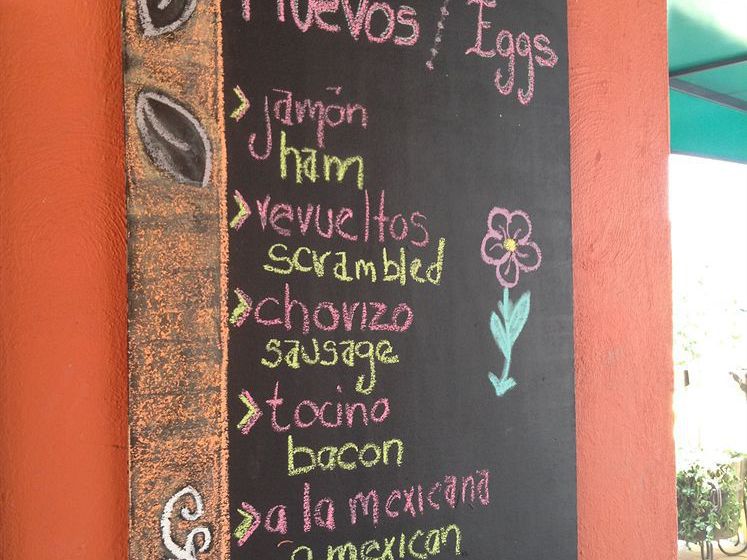 Huevos / Eggs
> jamón
ham
> revueltos
scrambled
> chorizo
sausage
> tocino
bacon
> a la mexicana
a mexican